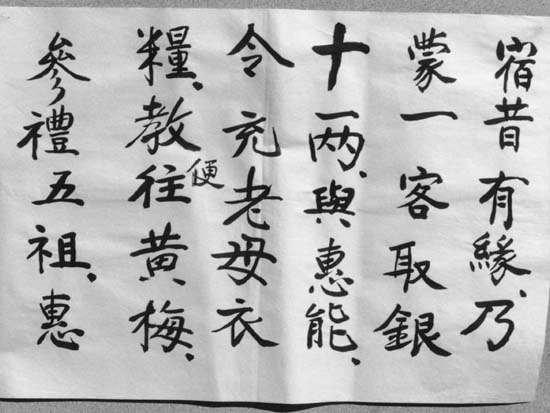 宿昔有緣、乃
蒙一客取銀
十兩、與惠能、
令充老母衣
糧、教便往黃梅、
參禮五祖、惠